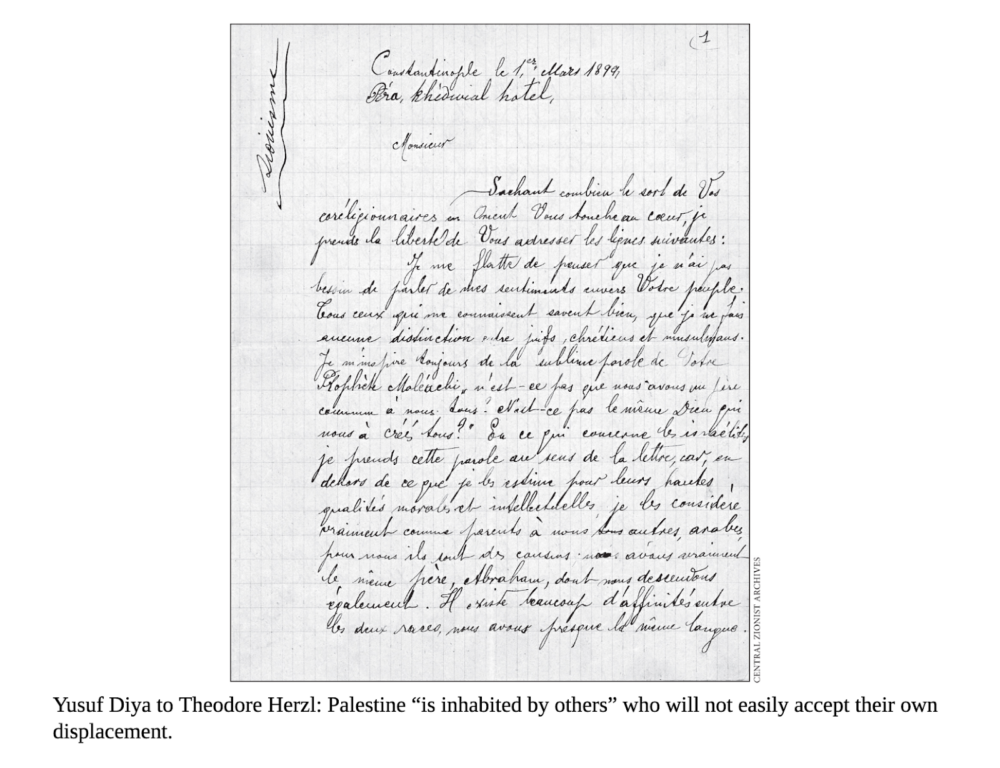 (1
Zionisme
Constantinople le 1,er Mars 1899,
Péra, khédivial hotel,
Monsieur
Sachant combien le sort de Vos
coréligionnaires en Orient Vous touche au cœur, je
prends la liberté de Vous adresser les lignes suivantes :
Je me flatte de penser que je n'ai pas
besoin de parler de mes sentiments envers Votre peuple.
Tous ceux qui me connaissent savent bien, que je ne fais
aucune distinction entre juifs, chrétiens et musulmans.
Je m'inspire toujours de la sublime parole de Votre
Prophète Maléachi, „n'est-ce pas que nous avons un père
commun à nous tous? N'est-ce pas le même Dieu qui
nous à créés tous?" En ce qui concerne les israélites
je prends cette parole au sens de la lettre, car, en
dehors de ce que je les estime pour leurs hautes
qualités morales et intellectuelles, je les considère
vraiment comme parents à nous autres, arabes,
pour nous ils sont des cousins. nous avons vraiment
le même père, Abraham, dont nous descendons
également. Il existe beaucoup d'affinités entre
les deux races, nous avons presque la même langue.
CENTRAL ZIONIST ARCHIVES
Yusuf Diya to Theodore Herzl: Palestine “is inhabited by others” who will not easily accept their own
displacement.